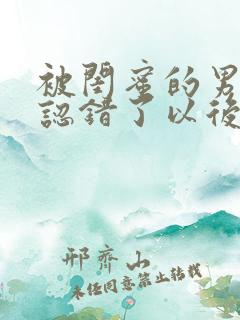 被閨蜜的男
認錯了以後
邢齊山
未经同意禁止转载